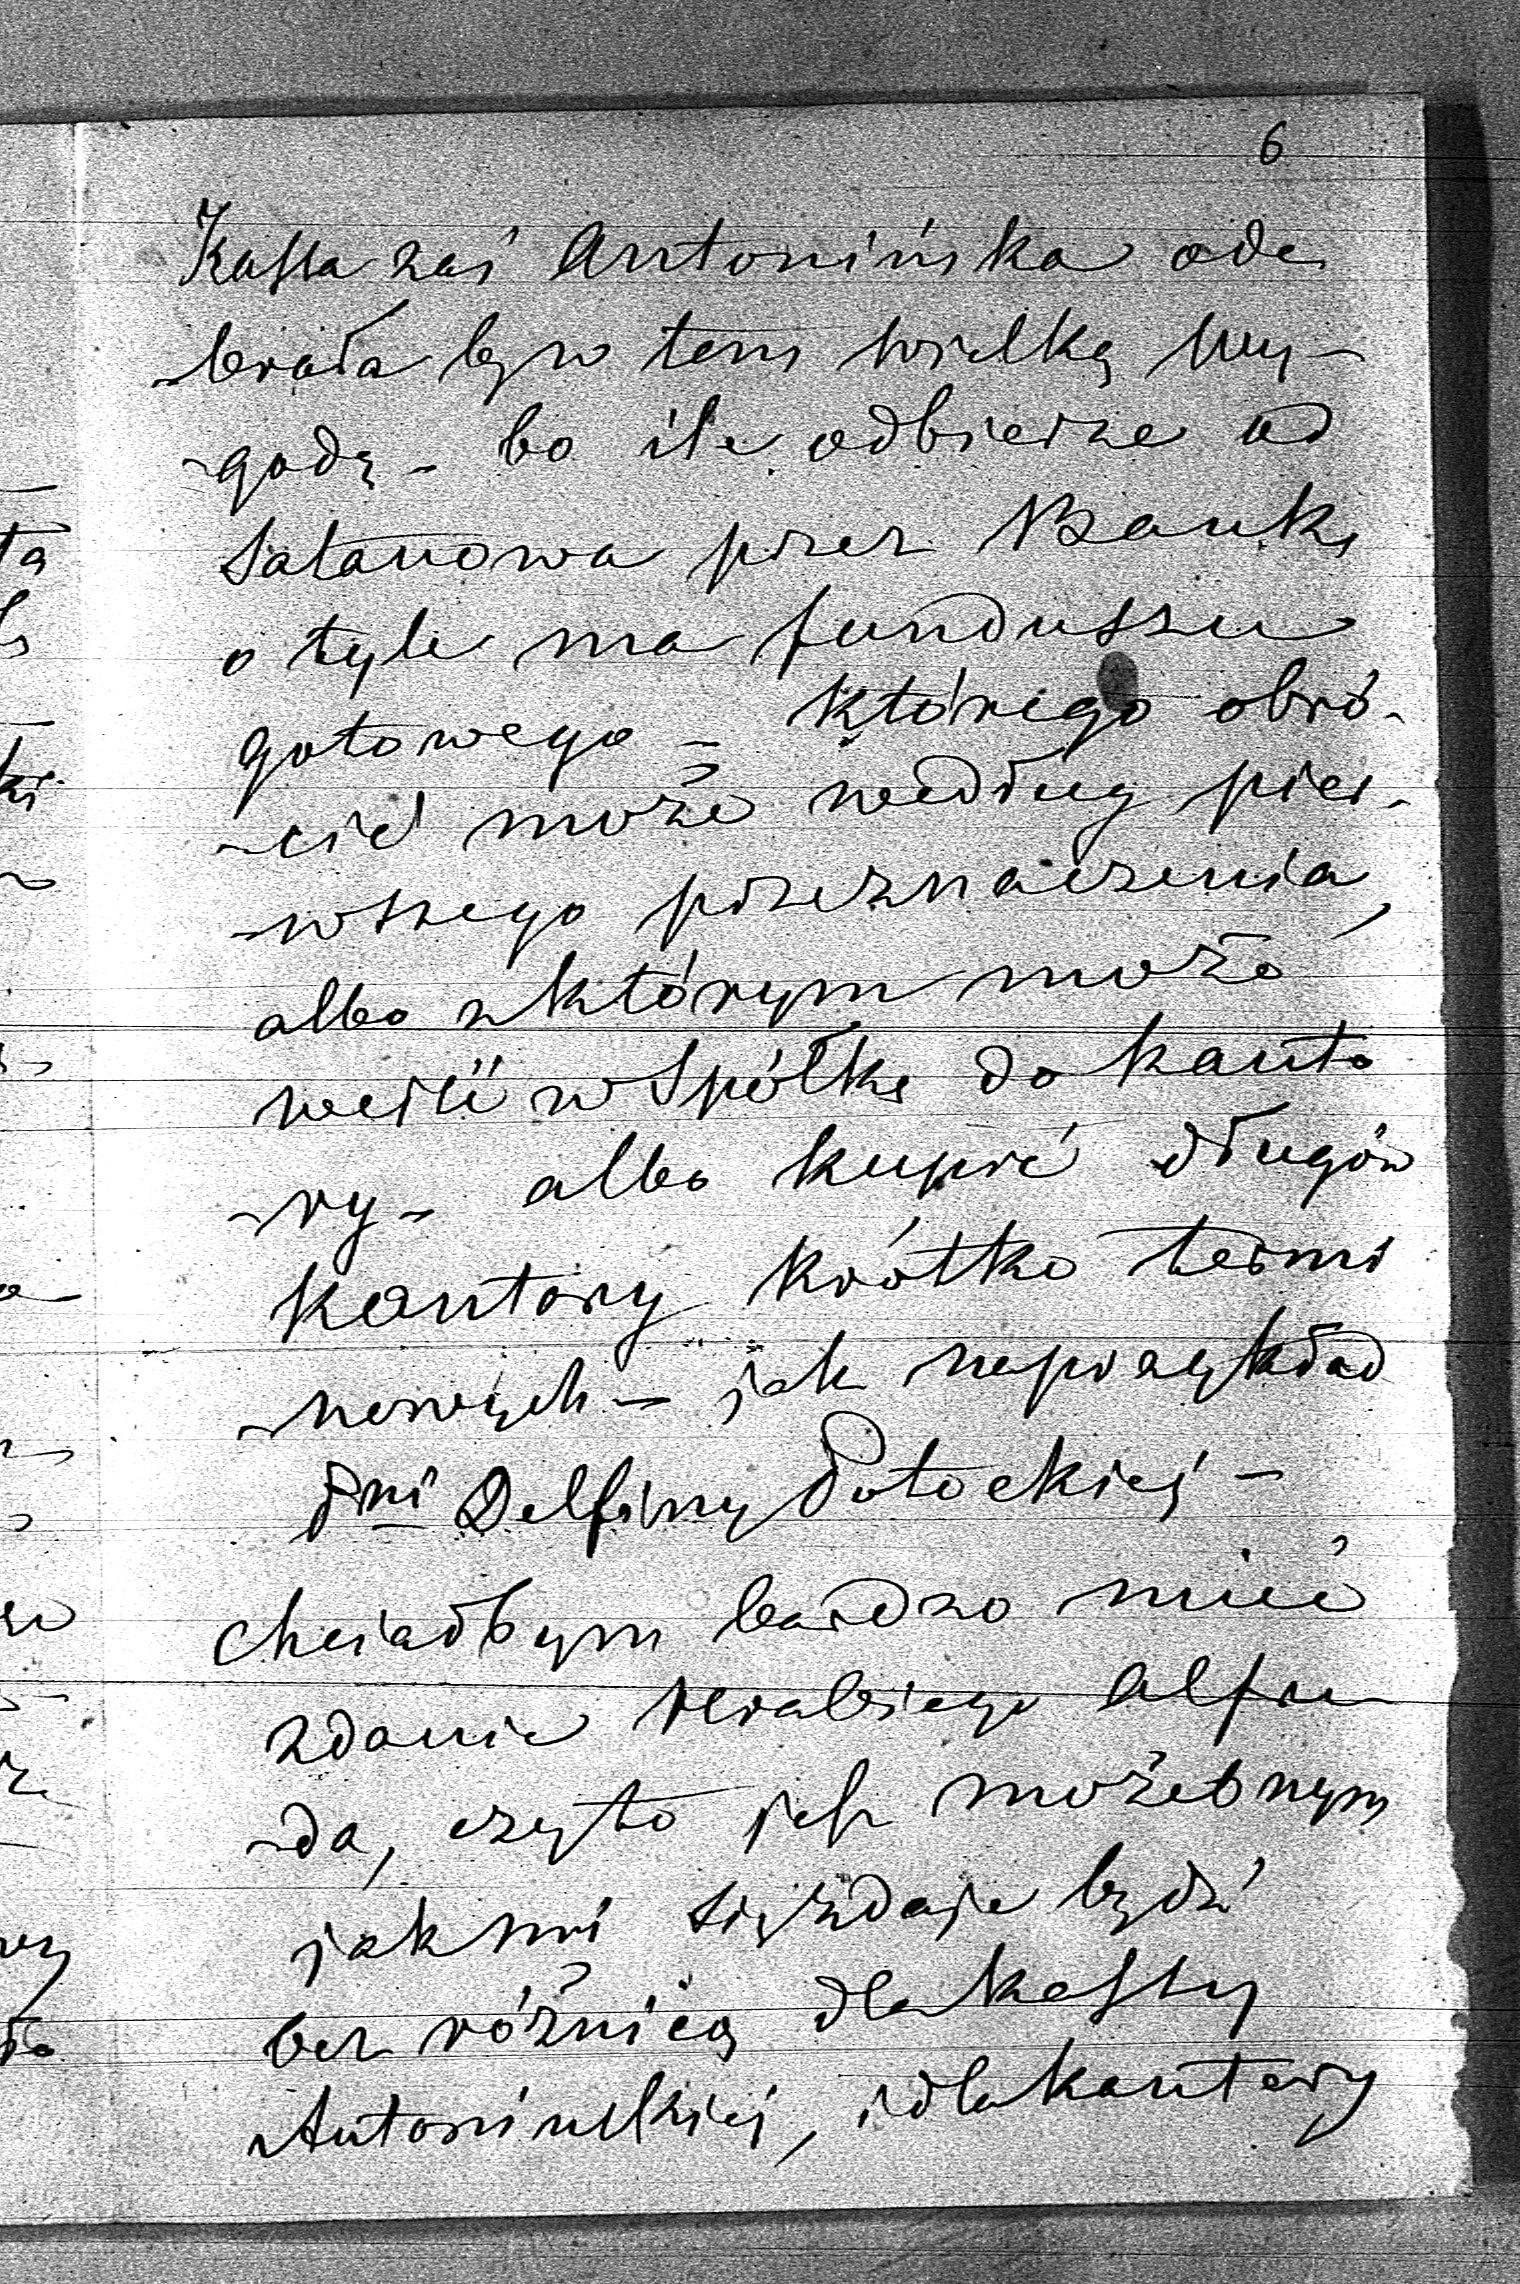 6
Kassa zaś Antonińska ode
-brała by w tem wielką wy-
-godę - bo ile odbierze od
Satanowa przez Bank,
o tyle ma funduszu
gotowego - którego obró-
-cić może według pier-
-wszego przeznaczenia,
albo z którym może
weiść w Spółkę do kanto
-ry - albo kupić długów
kantory krótko termi
-nowych - jak naprzykład
Pni Delfiny Potockiej -
chciałbym bardzo mieć
zdanie Hrabiego Alfre-
-da, czyto jest możebnym
jak mi się zdaje bydź
bez różnicą dla kassy
Antonińskiej, i dla kantory